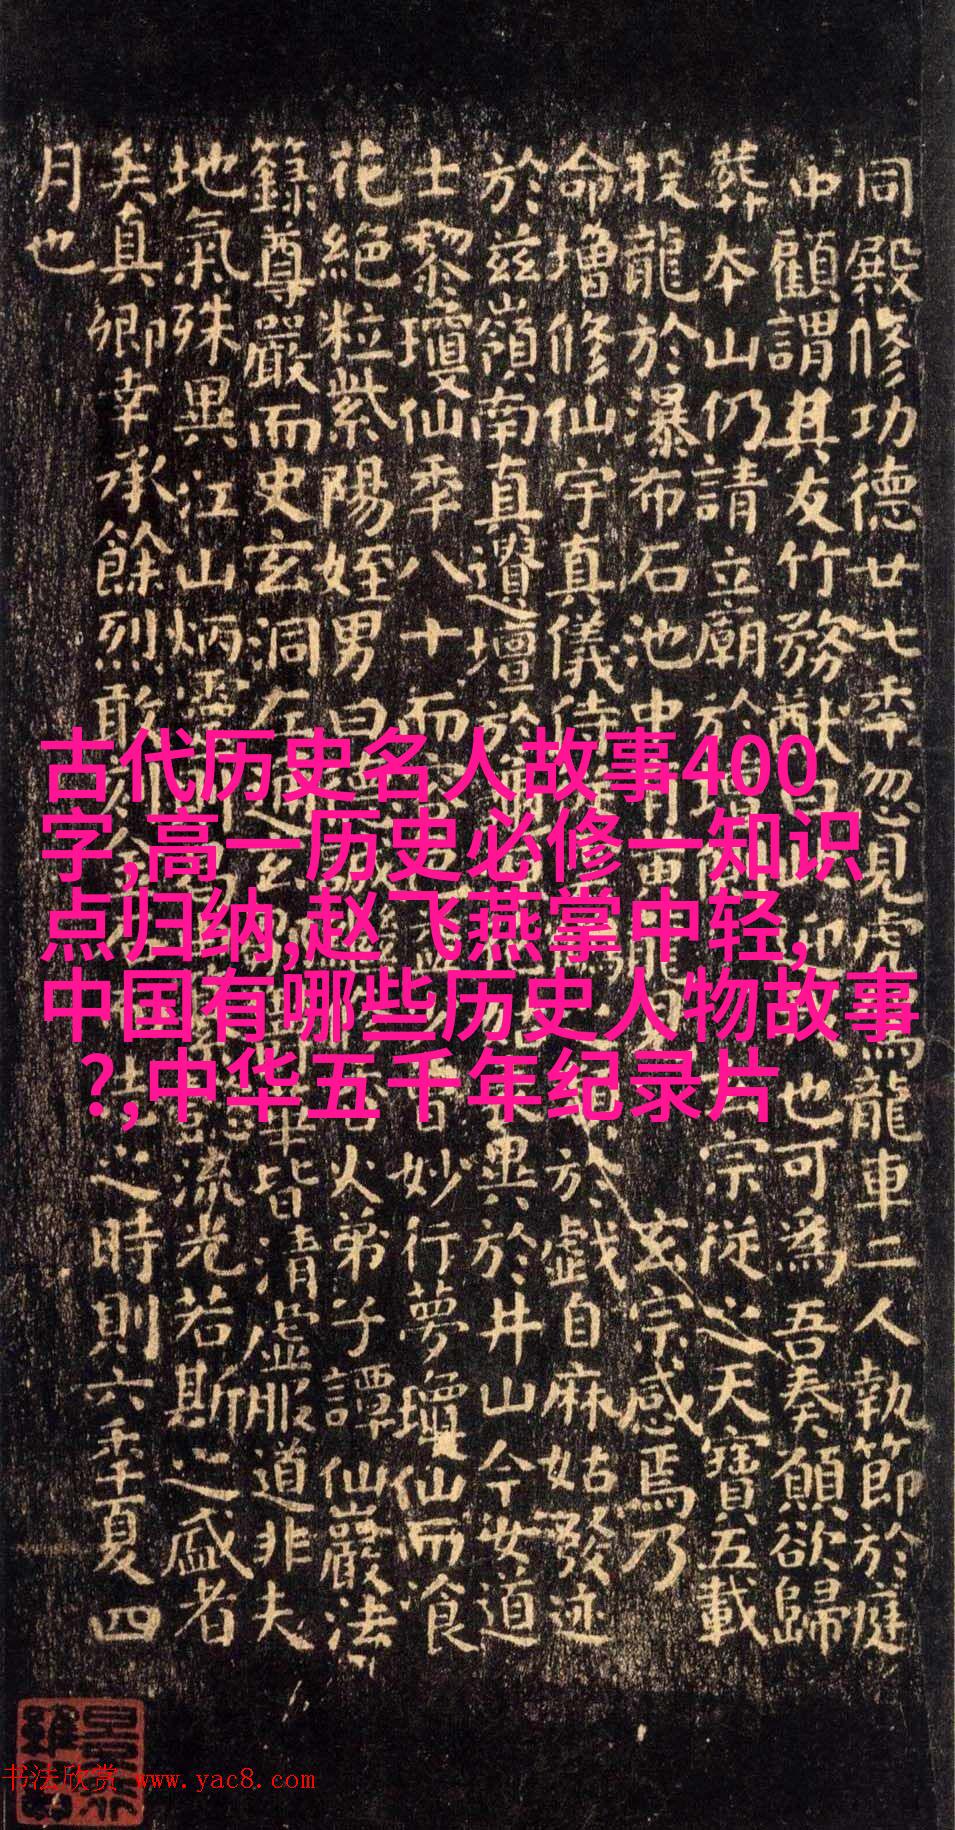 同殿修功德廿七年忽見虎駕龍車二人執節於庭
中顧謂其友竹務猷曰此迎我也可為吾奏願欲歸
葬本山仍請立廟於壇側玄宗從之天寶五載
投龍於瀑布石池中有黃龍見玄宗感焉乃
命增修仙宇真儀侍從於戲自麻姑發迹
於茲嶺南真遺壇於井山今女道
士黎瓊仙年八十而容妙行夢瓊仙而飡
花絕粒紫陽姪男曰火弟子譚仙巖法
籙尊嚴而史玄洞左皆清虛服道非夫
地氣殊異江山炳靈流光若斯之盛者
矣真卿幸承餘烈敢之時則六年夏四
月也
古代历史名人故事400
字,高一历史必修一知识
点归纳,赵飞燕掌中轻,
中国有哪些历史人物故事
?,中华五千年纪录片
书法欣赏 www.yac8.com